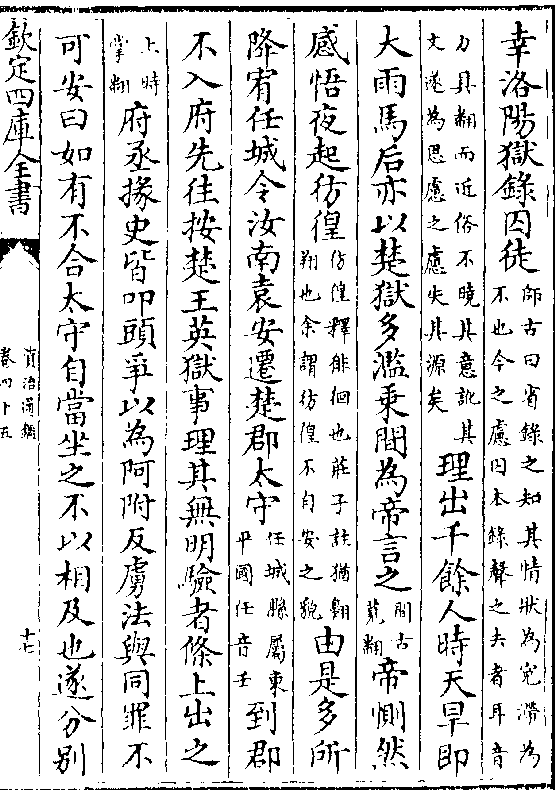 幸洛陽獄錄囚徒師古曰省錄之知其情狀為寃滯為不也今之慮囚本錄聲之去者耳音
力具翻而近俗不曉其意訛其文遂為思慮之慮失其源矣理出千餘人時天旱即
大雨馬后亦以楚獄多濫乗間為帝言之間古莧翻帝惻然
感悟夜起彷徨彷徨釋徘徊也莊子註猶翺翔也余謂彷徨不自安之貌由是多所
降宥任城令汝南袁安遷楚郡太守任城縣屬東平國任音壬到郡
不入府先往按楚王英獄事理其無明驗者條上出之
上時掌翻府丞掾史皆叩頭爭以為阿附反虜法與同罪不
可安曰如有不合太守自當坐之不以相及也遂分別
欽定四庫全書
資治通鑑
卷四十五
十七